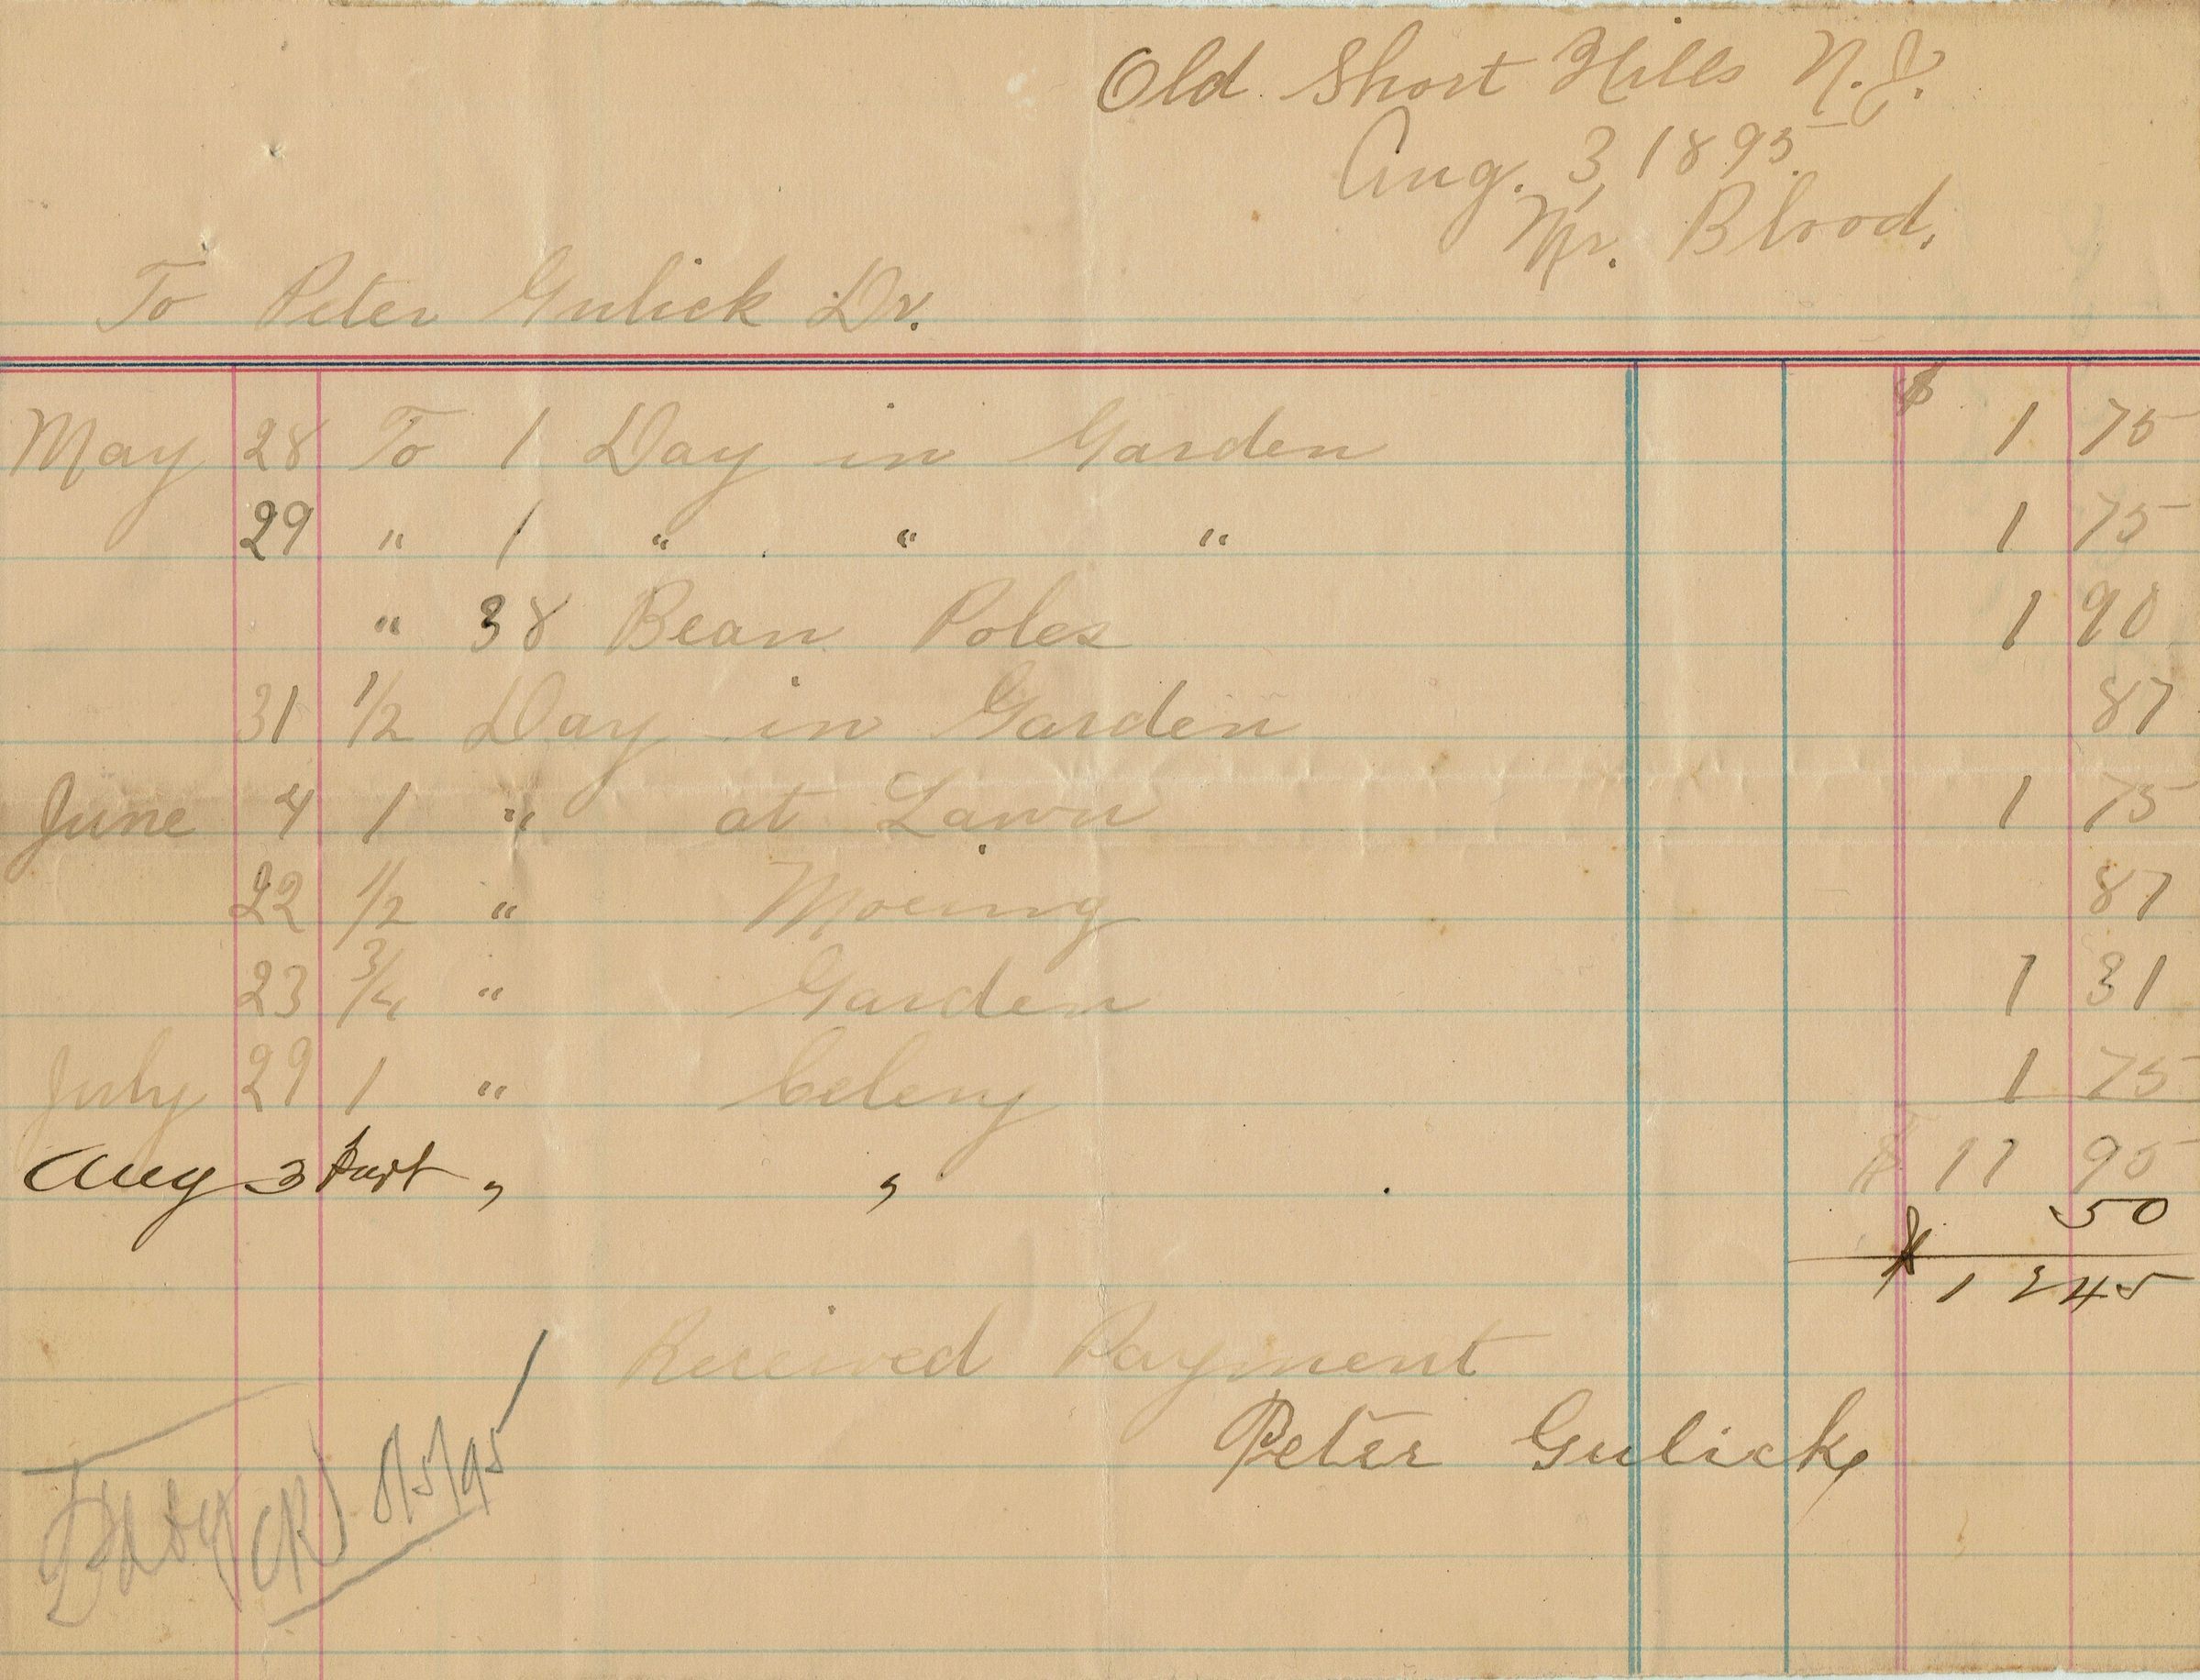 Old Short Hills N.J.
Aug. 3, 1895.
Mr. Blood,
To Peter Gulick Dr.
May 28 To 1 Day in Garden $ 1 75
29 " 1 " " " 1 75
" 38 Bean Poles 1 90
31 1/2 Day in Garden 87
June 4 1 " at Lawn 1 75
22 1/2 " Moeing 87
23 3/4 " Garden 1 31
July 29 1 " Celery 1 75
$ 11 95
Aug 3 Part " " 50
$ 12 45
Received Payment
Peter Gulick
Pd by CK 8/5/95